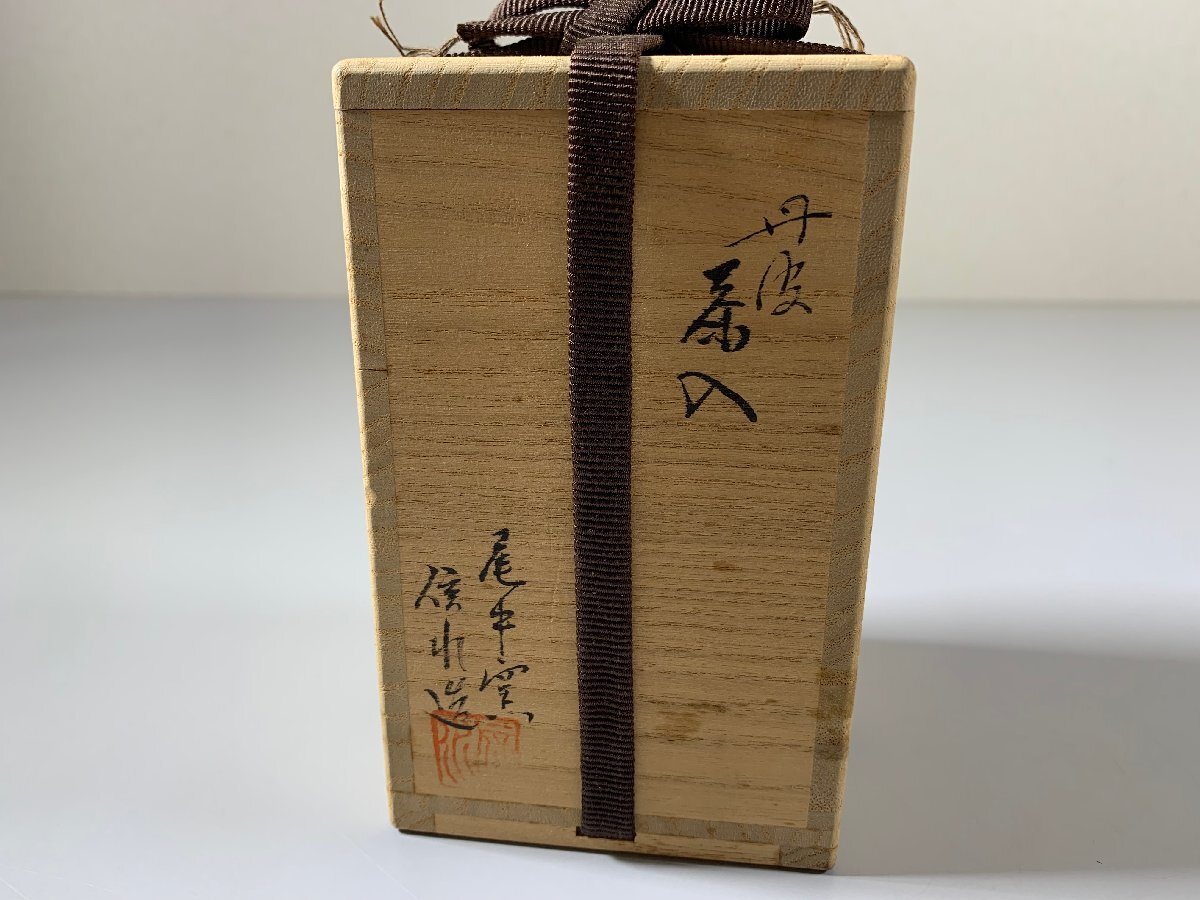 丹波
茶入
尾中窯
信水造